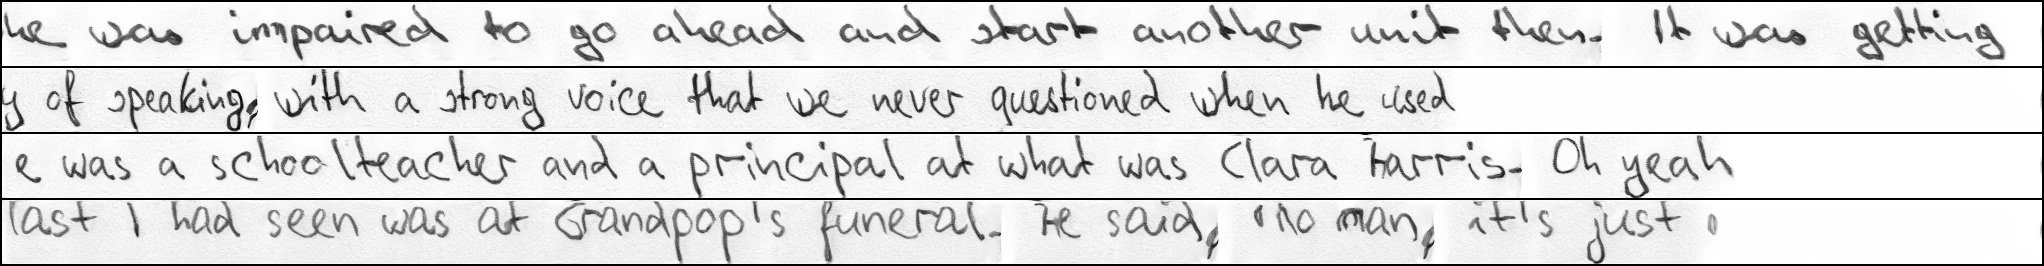 he was impaired to go ahead and start another unit then. It was getting
y of speaking, with a strong voice that we never questioned when he used
e was a schoolteacher and a principal at what was Clara Harris. Oh yeah
last I had seen was at Grandpop's funeral. He said, "No man, it's just